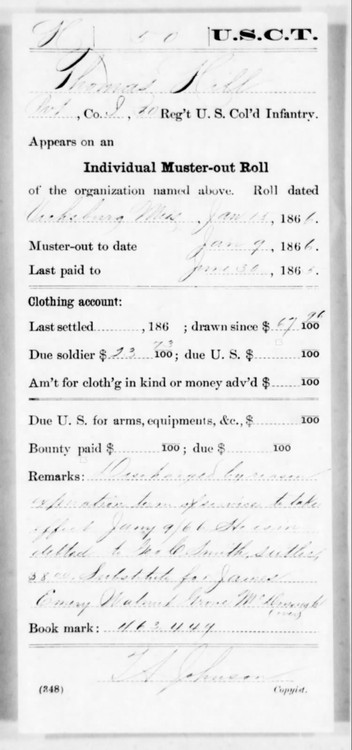 H 50 U.S.C.T.
Thomas Hill
Pvt, Co. I, 50 Reg't U. S. Col'd Infantry.
Appears on an
Individual Muster-out Roll
of the organization named above. Roll dated
Vicksburg Miss, Jan 15, 1866.
Muster-out to date Jan 9, 1866.
Last paid to June 30, 1865.
Clothing account:
Last settled, 186 ; drawn since $ 67 96/100
Due soldier $ 23 73/100; due U. S. $ 100
Am't for cloth'g in kind or money adv'd $ 100
Due U. S. for arms, equipments, &c., $ 100
Bounty paid $ 100; due $ 100
Remarks: Discharged by reason
expiration term of service to take
effect Jany 9/66 He is in
debted to Geo C. Smith, sutler,
$8.00. Substitute for James
Emery Walnut Grove
Book mark: 463.449
Johnson
(348) Copyist.